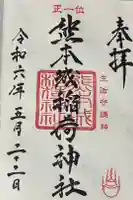 奉拝
正一位
生活守護神
熊本城稲荷神社
令和六年五月二十二日